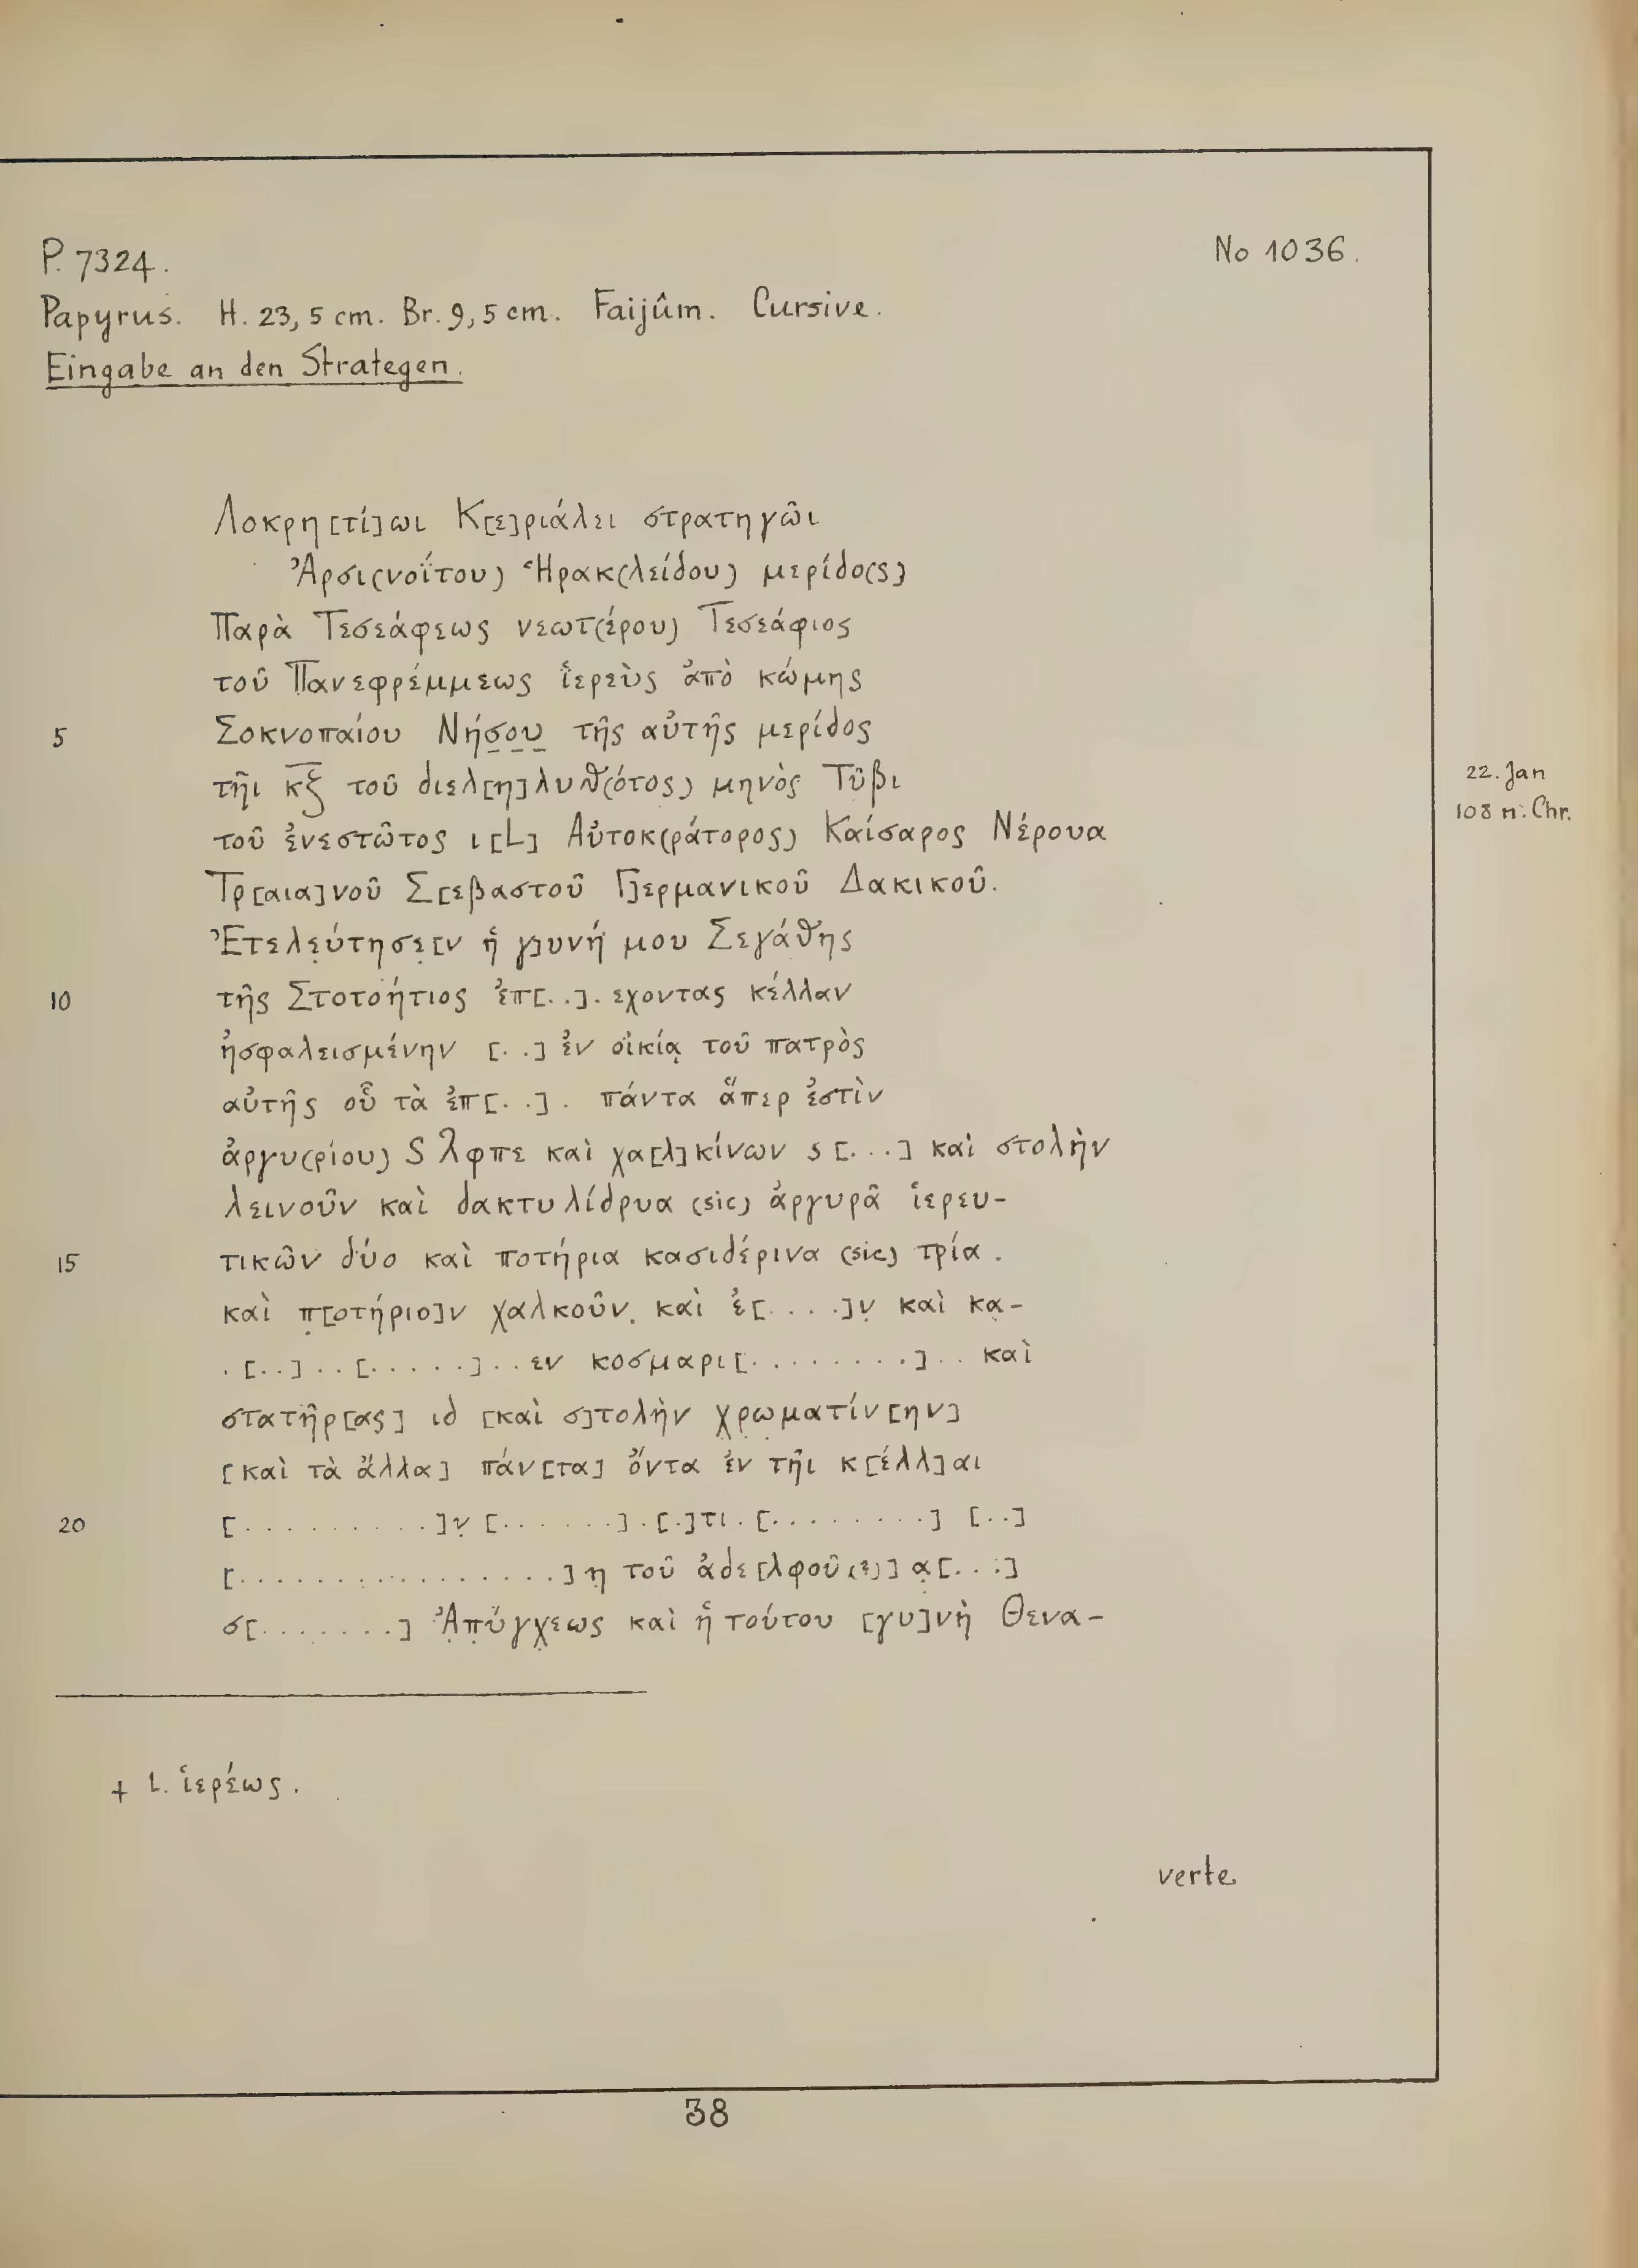 P. 7324. No 1036.
Papyrus. H. 23,5 cm. Br. 9,5 cm. Faijûm. Cursive.
Eingabe an den Strategen.
Λοκρη[τί]ωι Κ[ε]ριάλει στρατηγῶι
Ἀρσι(νοΐτου) Ἡρακ(λείδου) μερίδο(ς)
Παρὰ Τεσεάφεως νεωτ(έρου) Τεσεάφιος
τοῦ Πανεφρέμμεως ἱερεὺς ἀπὸ κώμης
5 Σοκνοπαίου Νήσου τῆς αὐτῆς μερίδος
τῆι κξ τοῦ διελ[η]λυθ(ότος) μηνὸς Τῦβι 22. Jan
108 n. Chr.
τοῦ ἐνεστῶτος ι [L] Αὐτοκ(ράτορος) Καίσαρος Νέρουα
Τρ[αια]νοῦ Σ[εβαστοῦ Γ]ερμανικοῦ Δακικοῦ.
Ἐτελεύτησε[ν ἡ γ]υνή μου Σεγάθης
10 τῆς Στοτοήτιος ἐπ[..]. εχοντας κέλλαν
ἠσφαλεισμένην [..] ἐν οἰκίᾳ τοῦ πατρὸς
αὐτῆς οὗ τὰ ἐπ[..]. πάντα ἅπερ ἐστὶν
ἀργυ(ρίου) S λφπε καὶ χα[λ]κίνων s [...] καὶ στολὴν
λεινοῦν καὶ δακτυλίδρυα (sic) ἀργυρᾶ ἱερευ-
15 τικῶν δύο καὶ ποτήρια κασιδέρινα (sic) τρία.
καὶ π[οτήριο]ν χαλκοῦν. καὶ ἐ[....]ν καὶ κα-
.[..]..[.....]..εν κοσμαρι[........].. καὶ
στατῆρ[ας] ιδ [καὶ σ]τολὴν χρωματίν[ην]
[καὶ τὰ ἄλλα] πάν[τα] ὄντα ἐν τῆι κ[έλλ]αι
20 [..........]ν [......].[.]τι.[........] [..]
[.................]η τοῦ ἀδε[λφοῦ(?)] α[...]
σ[.......] Ἀπύγχεως καὶ ἡ τούτου [γυ]νὴ Θενα-
+ L. ἱερέως.
verte
38